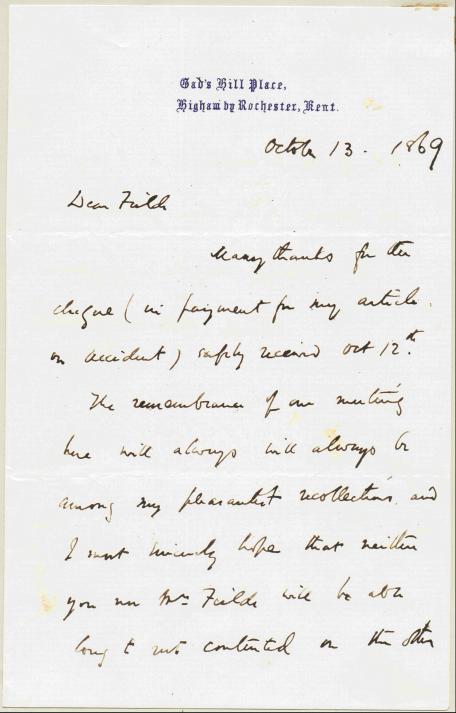 Gad's Hill Place,
Higham by Rochester, Kent.
October 13. 1869
Dear Fields
Many thanks for the
cheque (in payment for my article
on accident) safely received Oct 12th.
The remembrance of our meeting
here will always will always be
among my pleasantest recollections, and
I most sincerely hope that neither
you nor Mrs Fields will be able
long to rest contented on the other